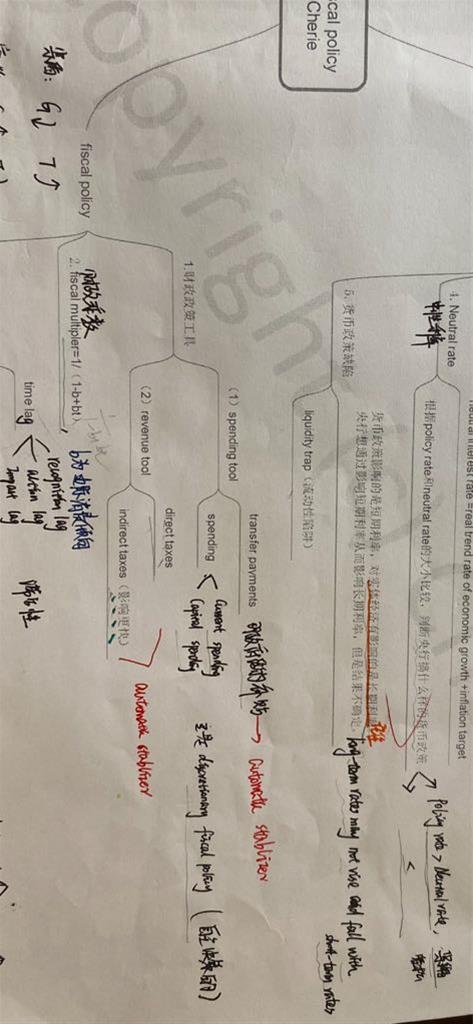 neutral interest rate =real trend rate of economic growth + inflation target
4. Neutral rate
中性利率
根据policy rate和neutral rate的大小比较，判断央行搞什么样的货币政策
Policy rate > Neutral rate, 紧缩
<
5. 货币政策缺陷
货币政策影响的是短期利率，对实体经济有影响的是长期利率
央行想通过影响短期利率从而影响长期利率，但是结果不确定
long-term rates may not rise and fall with
short-term rates
liquidity trap（流动性陷阱）
cal policy
Cherie
copyright
fiscal policy
紧缩: G↓ T↑
1.财政政策工具
（1）spending tool
transfer payments 政府的补贴 → automatic stablizer
spending
Current spending
Capital spending
主是 discretionary fiscal policy
（2）revenue tool
direct taxes
indirect taxes（影响更快）
automatic stablizer
2. fiscal multiplier=1/（1-b+bt）,
财政乘数
time lag
recognition lag
action lag
Impact lag
滞后性